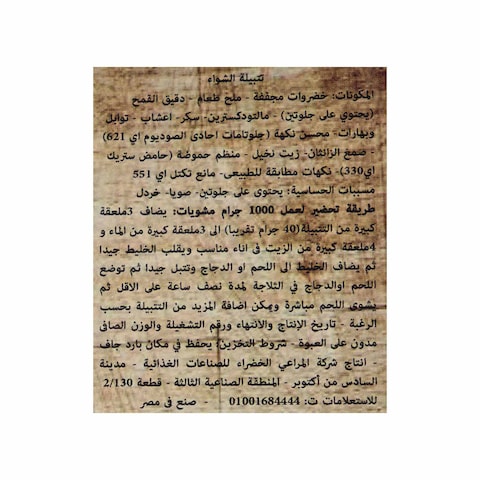 تتبيلة الشواء
المكونات: خضروات مجففة - ملح طعام - دقيق القمح
(يحتوي على جلوتين) - مالتودكسترين- سكر- اعشاب - توابل
وبهارات- محسن نكهة (جلوتامات احادى الصوديوم اي 621)
- صمغ الزانثان- زيت نخيل - منظم حموضة (حامض ستريك
اي330)- نكهات مطابقة للطبيعى- مانع تكتل اي 551
مسببات الحساسية: يحتوى على جلوتين- صويا- خردل
طريقة تحضير لعمل 1000 جرام مشويات: يضاف 3ملعقة
كبيرة من التتبيلة(40 جرام تقريبا) الى 3ملعقة كبيرة من الماء و
4ملعقة كبيرة من الزيت فى اناء مناسب ويقلب الخليط جيدا
ثم يضاف الخليط الى اللحم او الدجاج وتتبل جيدا ثم توضع
اللحم اوالدجاج في الثلاجة لمدة نصف ساعة على الاقل ثم
يشوى اللحم مباشرة ويمكن اضافة المزيد من التتبيلة بحسب
الرغبة - تاريخ الإنتاج والانتهاء ورقم التشغيلة والوزن الصافى
مدون على العبوة - شروط التخزين: يحفظ في مكان بارد جاف
- انتاج شركة المراعي الخضراء للصناعات الغذائية - مدينة
السادس من أكتوبر - المنطقة الصناعية الثالثة - قطعة 2/130
للاستعلامات ت: 01001684444 - صنع فى مصر